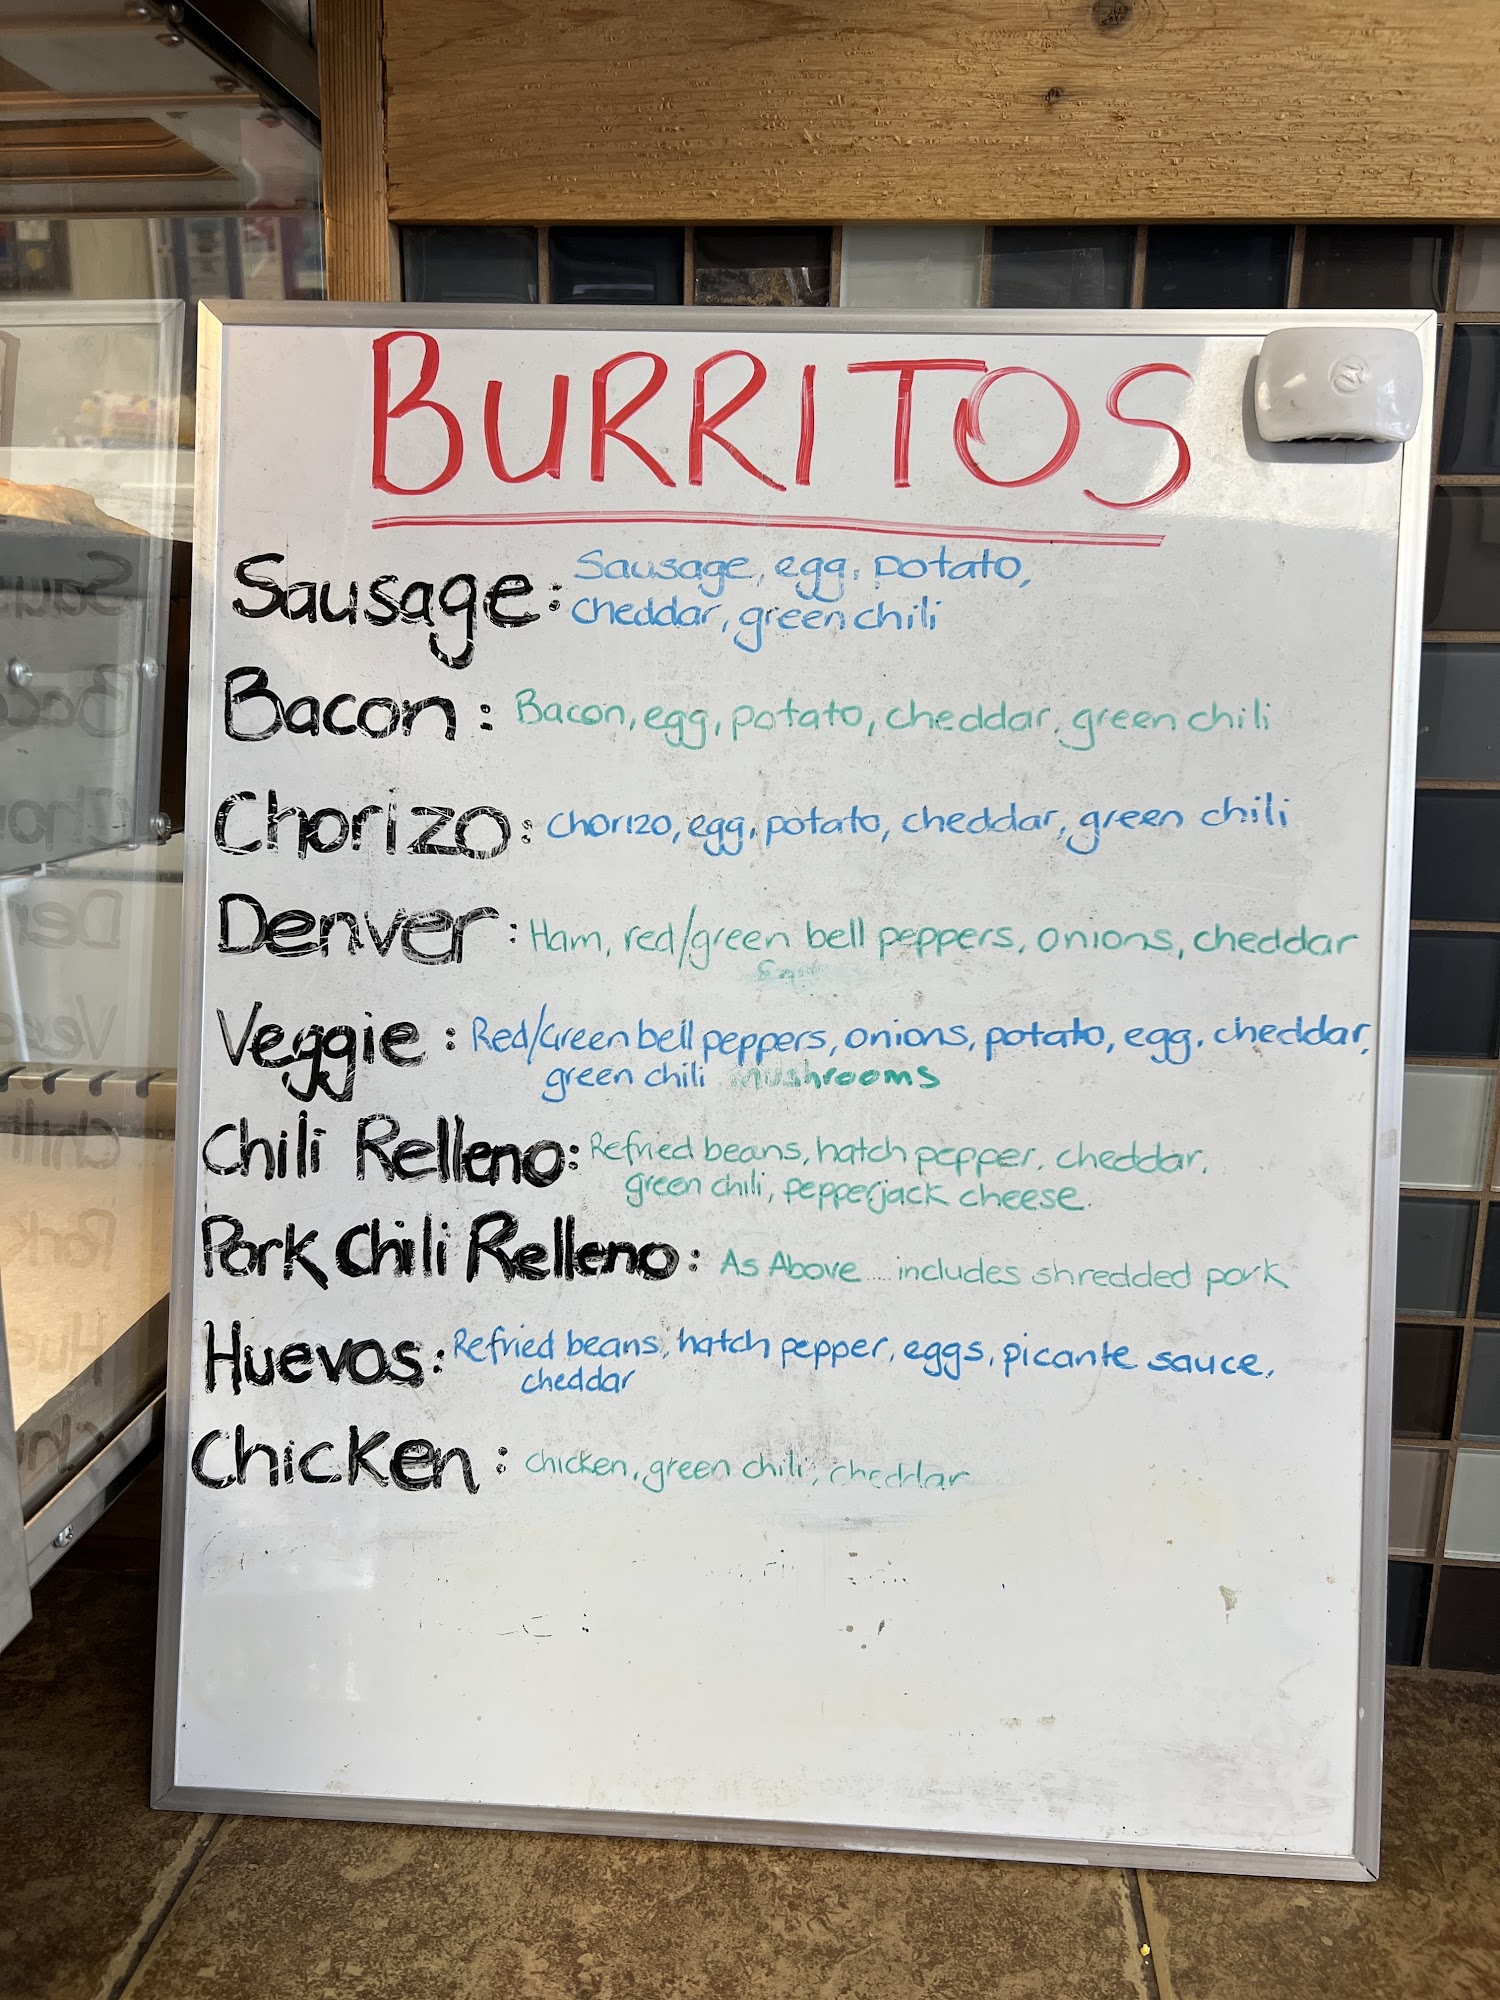 BURRITOS
Sausage: Sausage, egg, potato,
cheddar, green chili
Bacon: Bacon, egg, potato, cheddar, green chili
Chorizo: Chorizo, egg, potato, cheddar, green chili
Denver: Ham, red/green bell peppers, onions, cheddar
Veggie: Red/Green bell peppers, onions, potato, egg, cheddar,
green chili mushrooms
Chili Relleno: Refried beans, hatch pepper, cheddar,
green chili, pepperjack cheese.
Pork Chili Relleno: As Above..... includes shredded pork
Huevos: Refried beans, hatch pepper, eggs, picante sauce,
cheddar
Chicken: chicken, green chili, cheddar